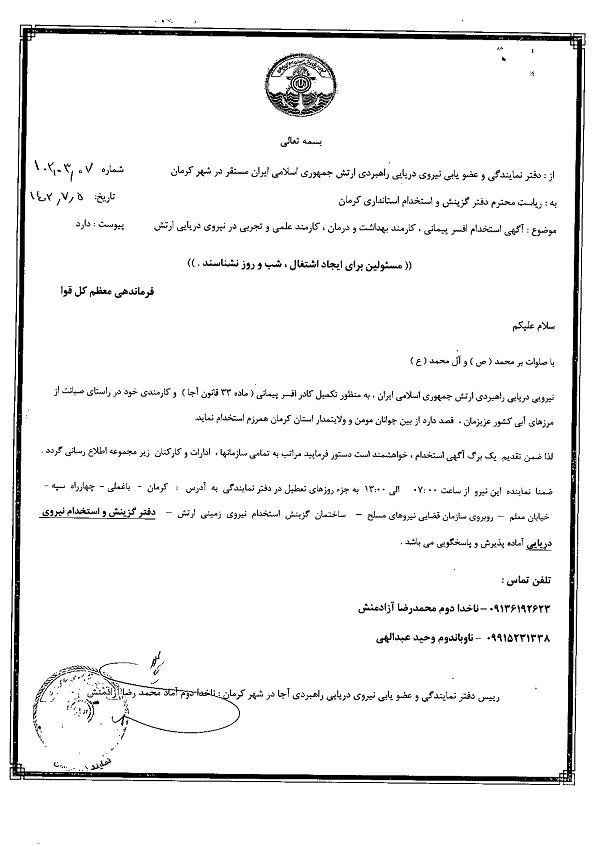 بسمه تعالی
از : دفتر نمایندگی و عضو یابی نیروی دریایی راهبردی ارتش جمهوری اسلامی ایران مستقر در شهر کرمان
شماره ۱۰۲،۰۳،۰۷
به : ریاست محترم دفتر گزینش و استخدام استانداری کرمان
تاریخ: ۱۴۰۲،۷،۵
موضوع : آگهی استخدام افسر پیمانی ، کارمند بهداشت و درمان ، کارمند علمی و تجربی در نیروی دریایی ارتش
پیوست : دارد
(( مسئولین برای ایجاد اشتغال ، شب و روز نشناسند . ))
فرماندهی معظم کل قوا
سلام علیکم
با صلوات بر محمد ( ص ) و آل محمد ( ع )
نیرویی دریایی راهبردی ارتش جمهوری اسلامی ایران ، به منظور تکمیل کادر افسر پیمانی ( ماده ۳۳ قانون آجا ) و کارمندی خود در راستای صیانت از
مرزهای آبی کشور عزیزمان ، قصد دارد از بین جوانان مومن و ولایتمدار استان کرمان همرزم استخدام نماید.
لذا ضمن تقدیم یک برگ آگهی استخدام ، خواهشمند است دستور فرمایید مراتب به تمامی سازمانها ، ادارات و کارکنان زیر مجموعه اطلاع رسانی گردد .
ضمنا نماینده این نیرو از ساعت ۰۷:۰۰ الی ۱۳:۰۰ به جزء روزهای تعطیل در دفتر نمایندگی به آدرس : کرمان - باغملی - چهارراه سپه -
خیابان معلم – روبروی سازمان قضایی نیروهای مسلح – ساختمان گزینش استخدام نیروی زمینی ارتش – دفتر گزینش و استخدام نیروی
دریایی آماده پذیرش و پاسخگویی می باشد .
تلفن تماس :
۰۹۱۳۶۱۹۲۶۲۳ – ناخدا دوم محمدرضا آزادمنش
۰۹۹۱۵۲۳۱۳۳۸ – ناوباندوم وحید عبدالهی
رییس دفتر نمایندگی و عضو یابی نیروی دریایی راهبردی آجا در شهر کرمان : ناخدا دوم آماد محمد رضا آزادمنش